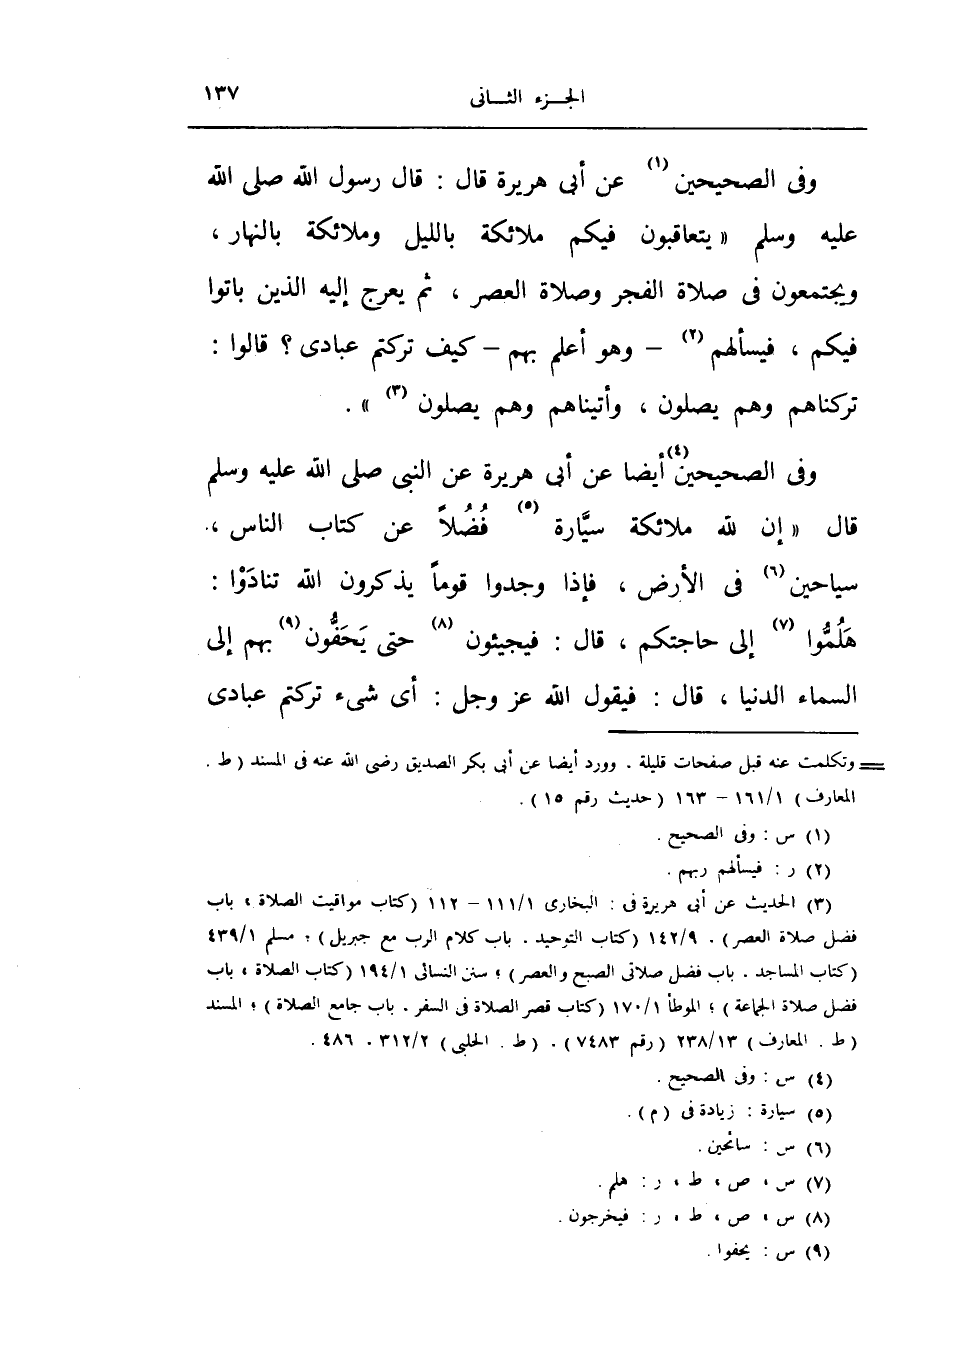 الجـزء الثـانى ١٣٧
وفى الصحيحين (١) عن أبى هريرة قال : قال رسول الله صلى الله
عليه وسلم « يتعاقبون فيكم ملائكة بالليل وملائكة بالنهار ،
ويجتمعون فى صلاة الفجر وصلاة العصر ، ثم يعرج إليه الذين باتوا
فيكم ، فيسألهم (٢) – وهو أعلم بهم – كيف تركتم عبادى ؟ قالوا :
تركناهم وهم يصلون ، وأتيناهم وهم يصلون (٣) » .
وفى الصحيحين (٤) أيضا عن أبى هريرة عن النبى صلى الله عليه وسلم
قال « إن لله ملائكة سيَّارة (٥) فُضُلاً عن كتاب الناس ،
سياحين (٦) فى الأرض ، فإذا وجدوا قوماً يذكرون الله تنادَوْا :
هَلُمُّوا (٧) إلى حاجتكم ، قال : فيجيئون (٨) حتى يَحَفُّون (٩) بهم إلى
السماء الدنيا ، قال : فيقول الله عز وجل : أى شىء تركتم عبادى
= وتكلمت عنه قبل صفحات قليلة . وورد أيضا عن أبى بكر الصديق رضى الله عنه فى المسند ( ط .
المعارف ) ١٦١/١ – ١٦٣ ( حديث رقم ١٥ ) .
(١) س : وفى الصحيح .
(٢) ر : فيسألهم ربهم .
(٣) الحديث عن أبى هريرة فى : البخارى ١١١/١ – ١١٢ (كتاب مواقيت الصلاة ، باب
فضل صلاة العصر ) . ١٤٢/٩ (كتاب التوحيد . باب كلام الرب مع جبريل ) ؛ مسلم ٤٣٩/١
(كتاب المساجد . باب فضل صلاتى الصبح والعصر ) ؛ سنن النسائى ١٩٤/١ (كتاب الصلاة ، باب
فضل صلاة الجماعة ) ؛ الموطأ ١٧٠/١ (كتاب قصر الصلاة فى السفر . باب جامع الصلاة ) ؛ المسند
( ط . المعارف ) ٢٣٨/١٣ ( رقم ٧٤٨٣ ) . ( ط . الحلبى ) ٣١٢/٢ . ٤٨٦ .
(٤) س : وفى الصحيح .
(٥) سيارة : زيادة فى ( م ) .
(٦) س : سائحين .
(٧) س ، ص ، ط ، ر : هلم .
(٨) س ، ص ، ط ، ر : فيخرجون .
(٩) س : يحفوا .